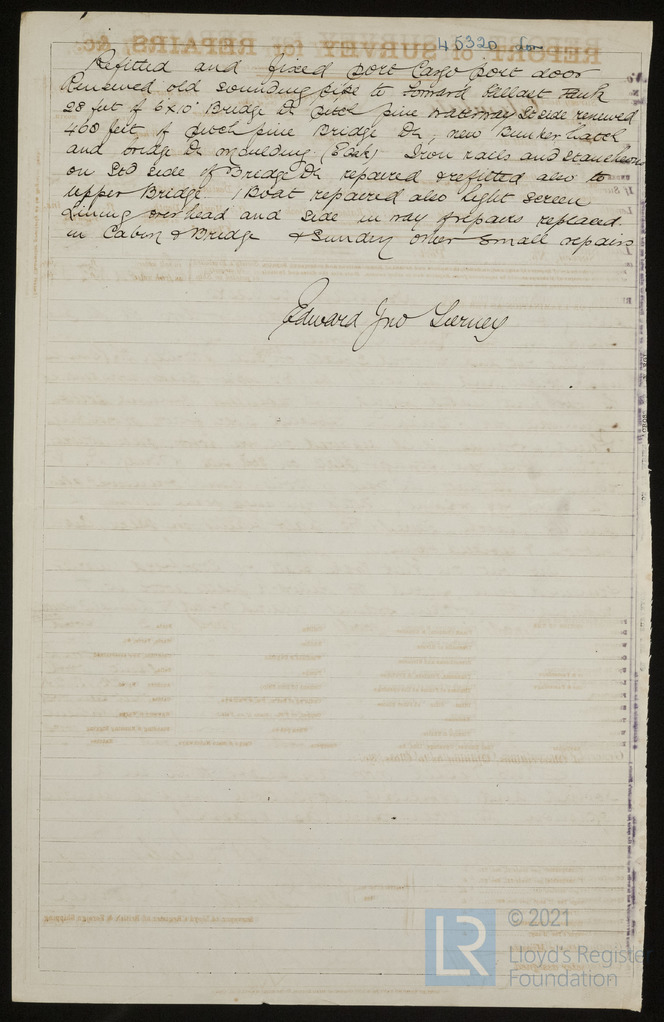 45320 Lon
Refitted and fixed port Cargo port door
Renewed old sounding pipe to Forward ballast Tank
28 feet of 6"x10" Bridge Dk pitch pine waterway St side renewed
460 feet of pitch pine Bridge Dk, new Bunker hatch
and bridge Dk moulding (Teak) Iron rails and stanchions
on Std side of Bridge Dk repaired & refitted also to
upper Bridge 1 Boat repaired also light screen
Lining overhead and side in way of repairs replaced
in Cabin & Bridge & Sundry other small repairs
Edward Jno Tierney
LR
© 2021
Lloyd's Register
Foundation